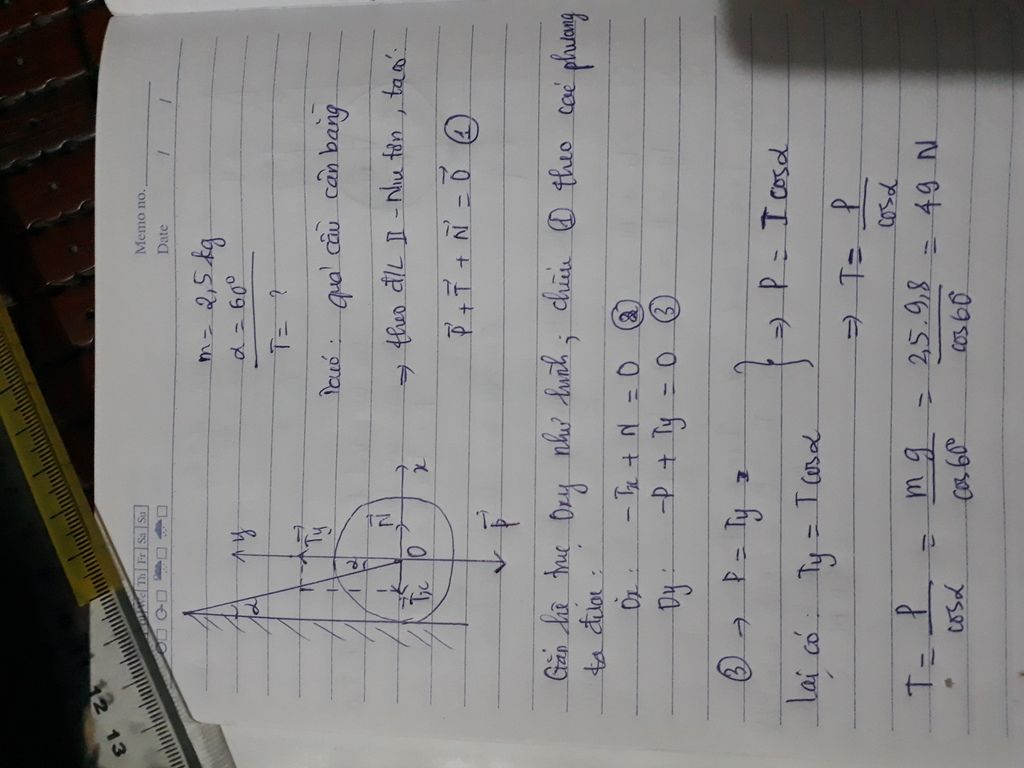 Memo no.
Date / /
Th Fr Sa Su
m = 2,5 kg
α = 60°
T = ?
Ta có: quả cầu cân bằng
⇒ theo đ/L II - Niu tơn, ta có:
P⃗ + T⃗ + N⃗ = 0⃗ (1)
y
T⃗y
α
α
N⃗
T⃗x
O
x
P⃗
Gắn hệ trục Oxy như hình; chiếu (1) theo các phương
ta được:
Ox: -Tx + N = 0 (2)
Oy: -P + Ty = 0 (3)
(3) → P = Ty
Lại có: Ty = T cosα
} ⇒ P = T cosα
⇒ T = P / cosα
T = P / cosα = mg / cos60° = 2,5.9,8 / cos60° = 49 N
12 13